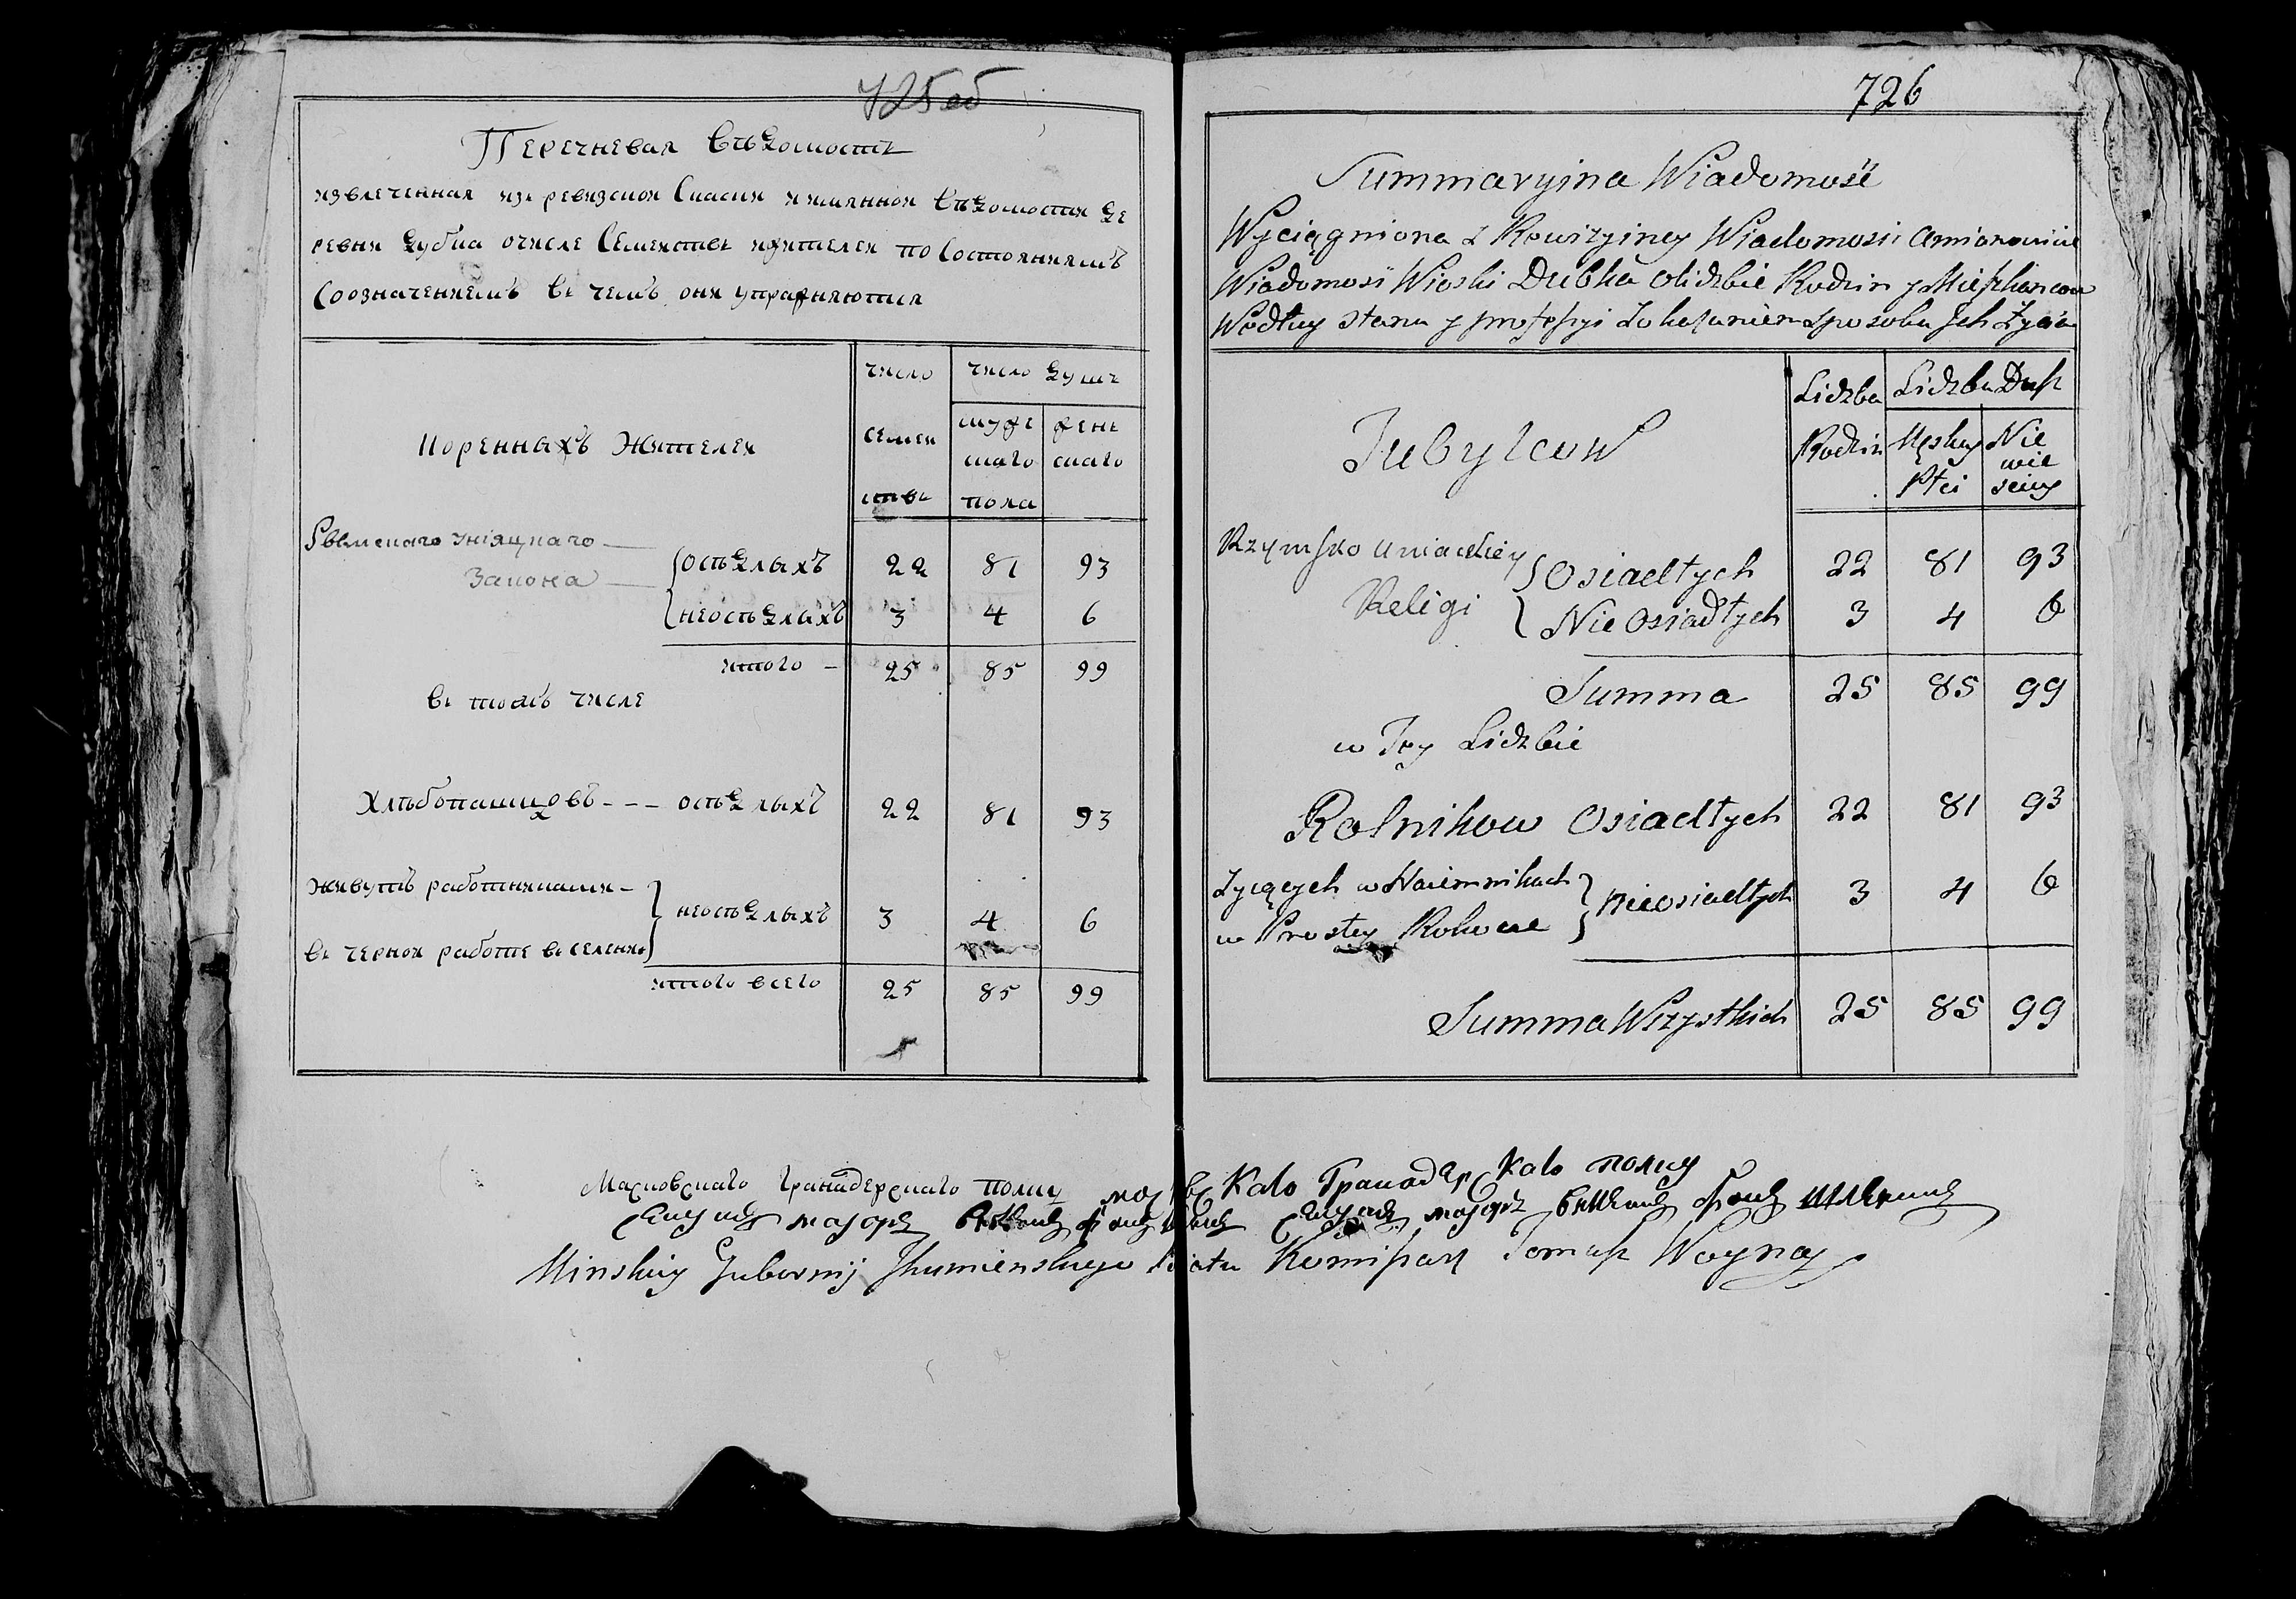 725 об
Перечневая вѣдомость
извлеченная изъ ревизской Скаски и имянной вѣдомости де
ревни дубка очисле Семействъ ижителей по Состояниямъ
Соозначениемъ въ чемъ они упражняются
коренныхъ Жителей
число семей ствъ
число душъ
мужескаго пола
женскаго
Рымскаго униацкаго
Закона
осѣдлыхъ 22 81 93
неосѣдлыхъ 3 4 6
итого 25 85 99
въ томъ числе
Хлѣбопашцовъ - - - осѣдлыхъ 22 81 93
Живутъ работниками
въ черной работе въ селении
неосѣдлыхъ 3 4 6
итого всего 25 85 99
726
Summaryina Wiadomość
Wyciągniona z Rewizyiney Wiadomosci
Wiadomosi Wioski Dubka olidzbie Rodzin y Mieszkancow
Wedłuy stanu y professyi Zokazaniem sposobu Jch Życia
Tubylcow
Lidzba Rodzin
Lidzba Dusz
Męskiey Płci
Nie wie sciey
Rzymsko uniackiey
Religi
Osiadłych 22 81 93
Nie Osiadłych 3 4 6
Summa 25 85 99
w Tey Lidzbie
Rolnikow Osiadłych 22 81 93
Zyiących w Naiemnikach
w Prostey Robocie
nieosiadłych 3 4 6
Summa Wszystkich 25 85 99
Московскаго Гранадерскаго полку
Секундъ маіоръ
Московскаго Гранадерскаго полку
Секундъ маіоръ
Minskiy Gubernij Jhumienskiego Piatu Komissarz Tomasz Woyna